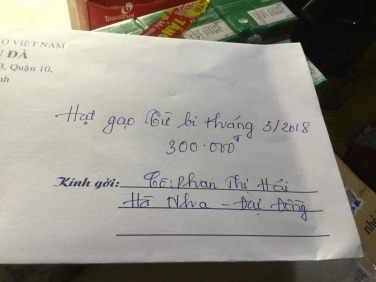 O VIỆT NAM
ĐÀ
3, Quận 10,
nh
Hạt gạo Từ bi tháng 3/2018
300.000đ
Kính gởi: Cô: Phan Thị Hái
Hà Nha - Đại Đồng